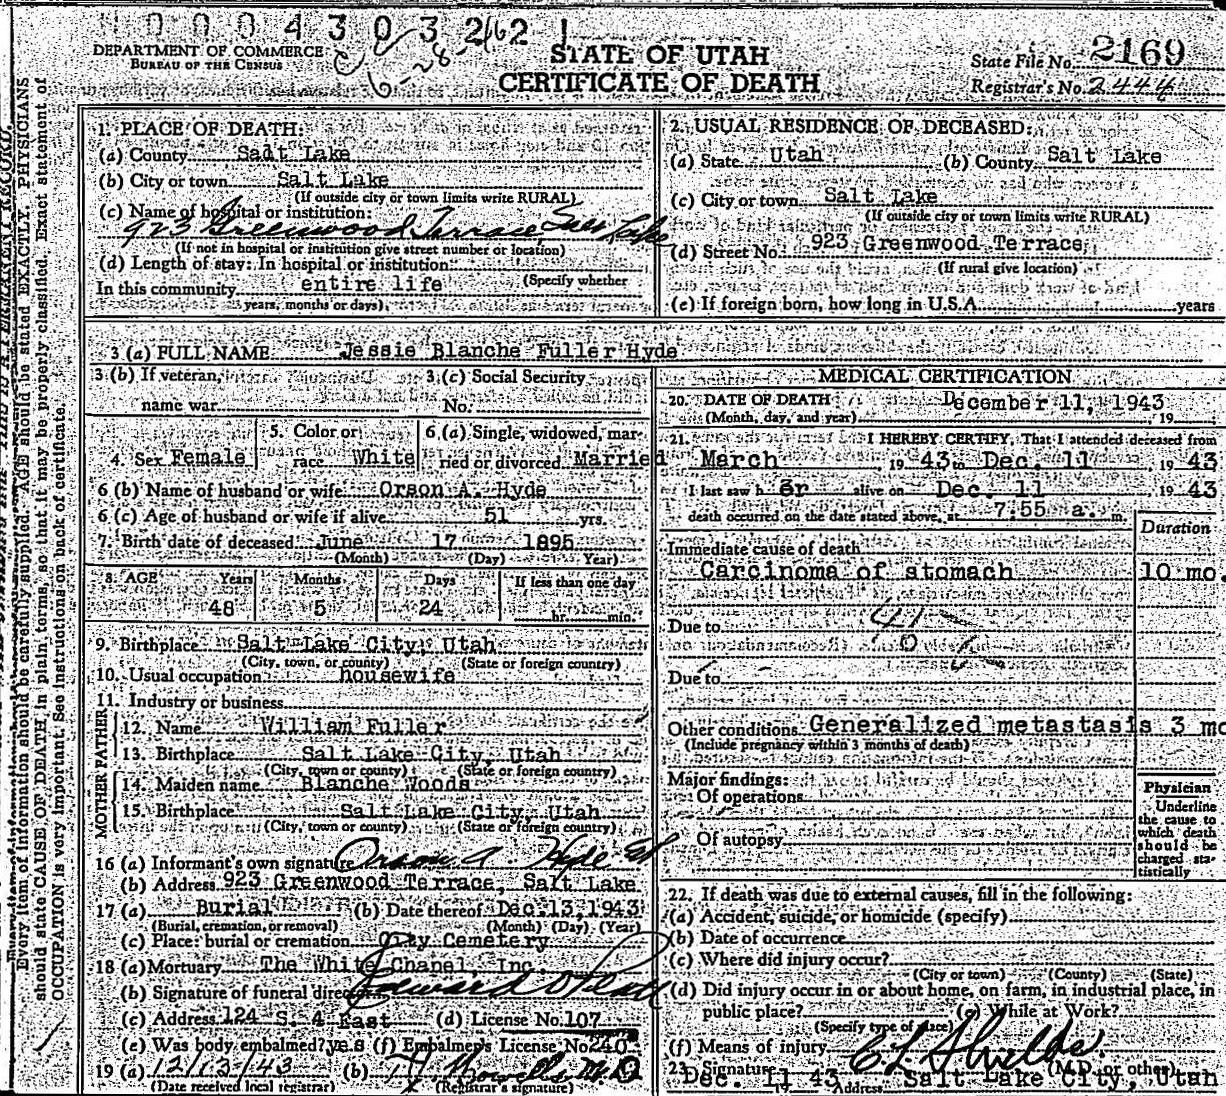 0 0 0 4 3 0 3 2162 1
6-28
DEPARTMENT OF COMMERCE
BUREAU OF THE CENSUS
STATE OF UTAH
CERTIFICATE OF DEATH
State File No. 2169
Registrar's No. 2444
Every item of information should be carefully supplied. AGE should be stated EXACTLY. PHYSICIANS
should state CAUSE OF DEATH in plain terms, so that it may be properly classified. Exact statement of
OCCUPATION is very important. See instructions on back of certificate.
1. PLACE OF DEATH:
(a) County Sadt Lake
(b) City or town Salt Lake
(If outside city or town limits write RURAL)
(c) Name of hospital or institution:
923 Greenwood Terrace, Salt Lake
(If not in hospital or institution give street number or location)
(d) Length of stay: In hospital or institution
(Specify whether
In this community entire life
years, months or days)
2. USUAL RESIDENCE OF DECEASED:
(a) State Utah (b) County Salt Lake
(c) City or town Salt Lake
(If outside city or town limits write RURAL)
(d) Street No. 923 Greenwood Terrace
(If rural give location)
(e) If foreign born, how long in U.S.A. years
3 (a) FULL NAME Jessie Blanche Fuller Hyde
3 (b) If veteran, 3 (c) Social Security
name war No.
4. Sex Female 5. Color or race White 6 (a) Single, widowed, married or divorced Married
6 (b) Name of husband or wife Orson A. Hyde
6 (c) Age of husband or wife if alive 51 yrs.
7. Birth date of deceased June 17 1895
(Month) (Day) Year)
8. AGE Years Months Days If less than one day
48 5 24 hr. min.
9. Birthplace Salt Lake City, Utah
(City, town, or county) (State or foreign country)
10. Usual occupation housewife
11. Industry or business
FATHER
12. Name William Fuller
13. Birthplace Salt Lake City, Utah
(City, town or county) (State or foreign country)
MOTHER
14. Maiden name Blanche Woods
15. Birthplace Salt Lake City, Utah
(City, town or county) (State or foreign country)
16 (a) Informant's own signature Orson A. Hyde
(b) Address 923 Greenwood Terrace, Salt Lake
17 (a) Burial (b) Date thereof Dec.13,1943
(Burial, cremation, or removal) (Month) (Day) (Year)
(c) Place: burial or cremation City Cemetery
18 (a) Mortuary The White Chapel, Inc.
(b) Signature of funeral director Edward
(c) Address 124 S. 4 East (d) License No. 107
(e) Was body embalmed? yes (f) Embalmer's License No. 240
19 (a) 12/13/43 (b) M.D.
(Date received local registrar) (Registrar's signature)
MEDICAL CERTIFICATION
20. DATE OF DEATH December 11, 1943
(Month, day, and year) 19
21. I HEREBY CERTIFY, That I attended deceased from
March , 19 43 to Dec. 11 , 19 43
I last saw h er alive on Dec. 11 19 43
death occurred on the date stated above, at 7:55 a. m.
Duration
Immediate cause of death
Carcinoma of stomach 10 mo.
Due to
Due to
Other conditions Generalized metastasis 3 mo
(Include pregnancy within 3 months of death)
Major findings:
Of operations
Of autopsy
Physician
Underline
the cause to
which death
should be
charged sta-
tistically
22. If death was due to external causes, fill in the following:
(a) Accident, suicide, or homicide (specify)
(b) Date of occurrence
(c) Where did injury occur?
(City or town) (County) (State)
(d) Did injury occur in or about home, on farm, in industrial place, in
public place? (e) While at Work?
(Specify type of place)
(f) Means of injury
23. Signature E L Shields (M.D. or other)
Dec. 11 43 Address Salt Lake City, Utah